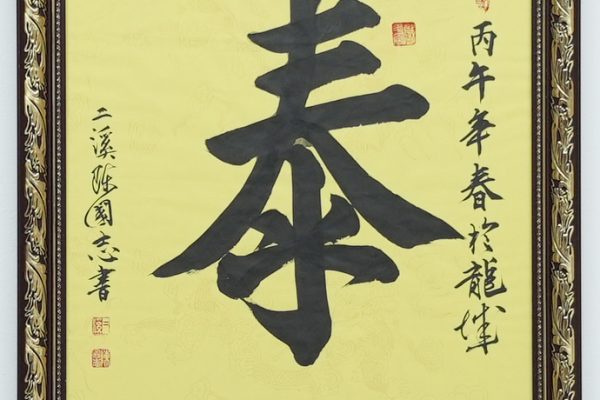 丙午年春於龍城
泰
二溪陈國志書